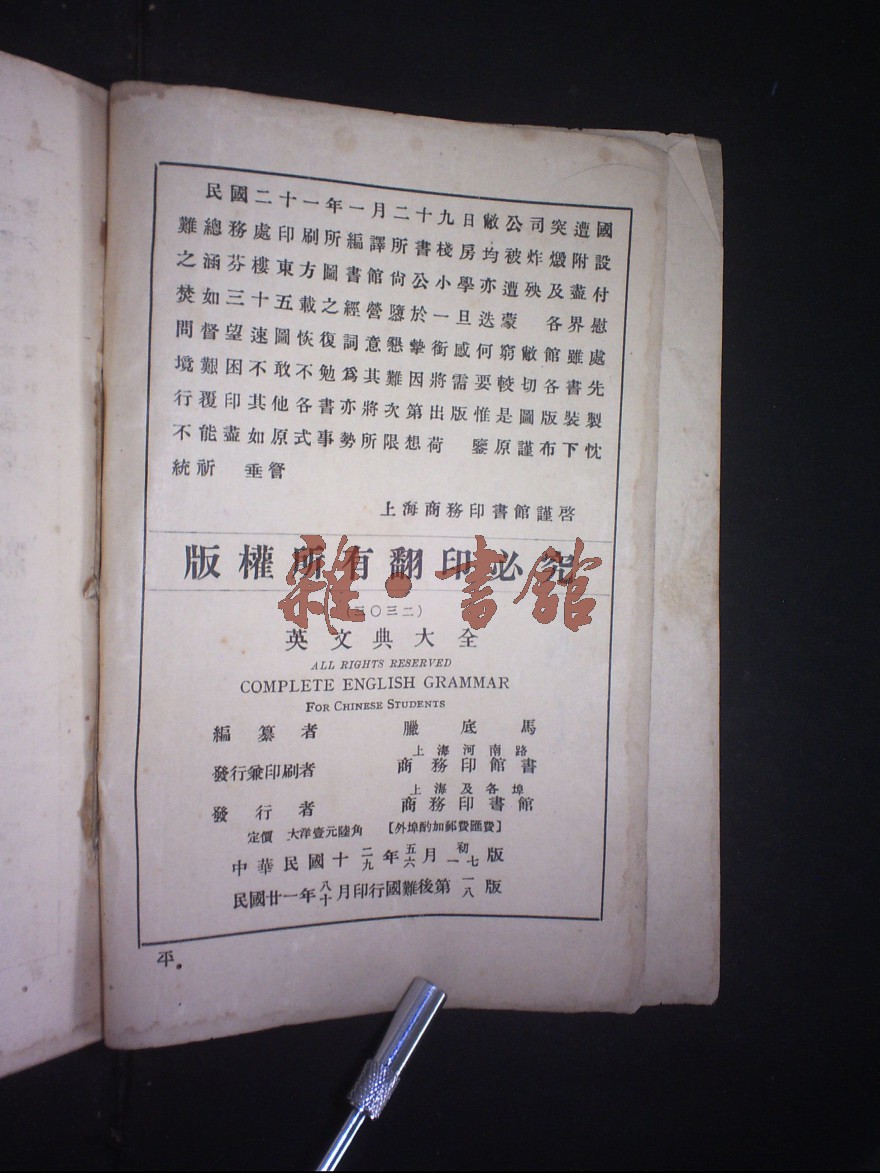 民國二十一年一月二十九日敝公司突遭國
難總務處印刷所編譯所書棧房均被炸燬附設
之涵芬樓東方圖書館尙公小學亦遭殃及盡付
焚如三十五載之經營隳於一旦迭蒙 各界慰
問督望速圖恢復詞意懇摯銜感何窮敝館雖處
境艱困不敢不勉爲其難因將需要較切各書先
行覆印其他各書亦將次第出版惟是圖版裝製
不能盡如原式事勢所限想荷 鑒原謹布下忱
統祈 垂詧
上海商務印書館謹啓
版權所有翻印必究
雜·書館
(三〇三二)
英文典大全
ALL RIGHTS RESERVED
COMPLETE ENGLISH GRAMMAR
FOR CHINESE STUDENTS
編纂者 臘底馬
上海河南路
發行兼印刷者 商務印館書
上海及各埠
發行者 商務印書館
定價 大洋壹元陸角 〔外埠酌加郵費匯費〕
中華民國十二九年五六月初一七版
民國廿一年八十月印行國難後第一八版
平。